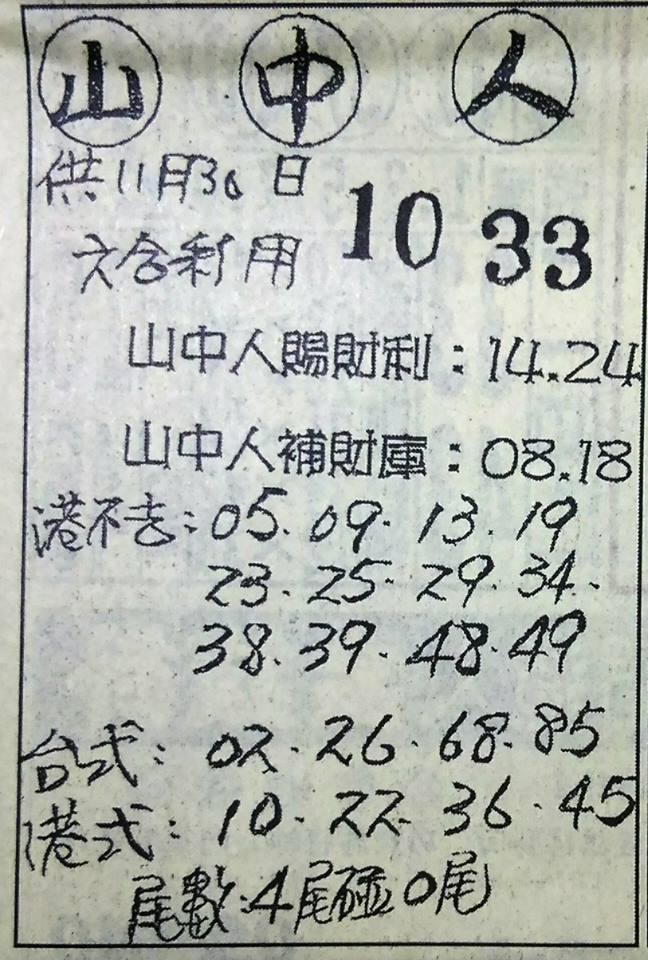 山中人
供11月30日
六合利用
10 33
山中人賜財利：14.24
山中人補財庫：08.18
港不去：05.09.13.19
23.25.29.34.
38.39.48.49
台式：02.26.68.85
港式：10.22.36.45
尾數：4尾碰0尾